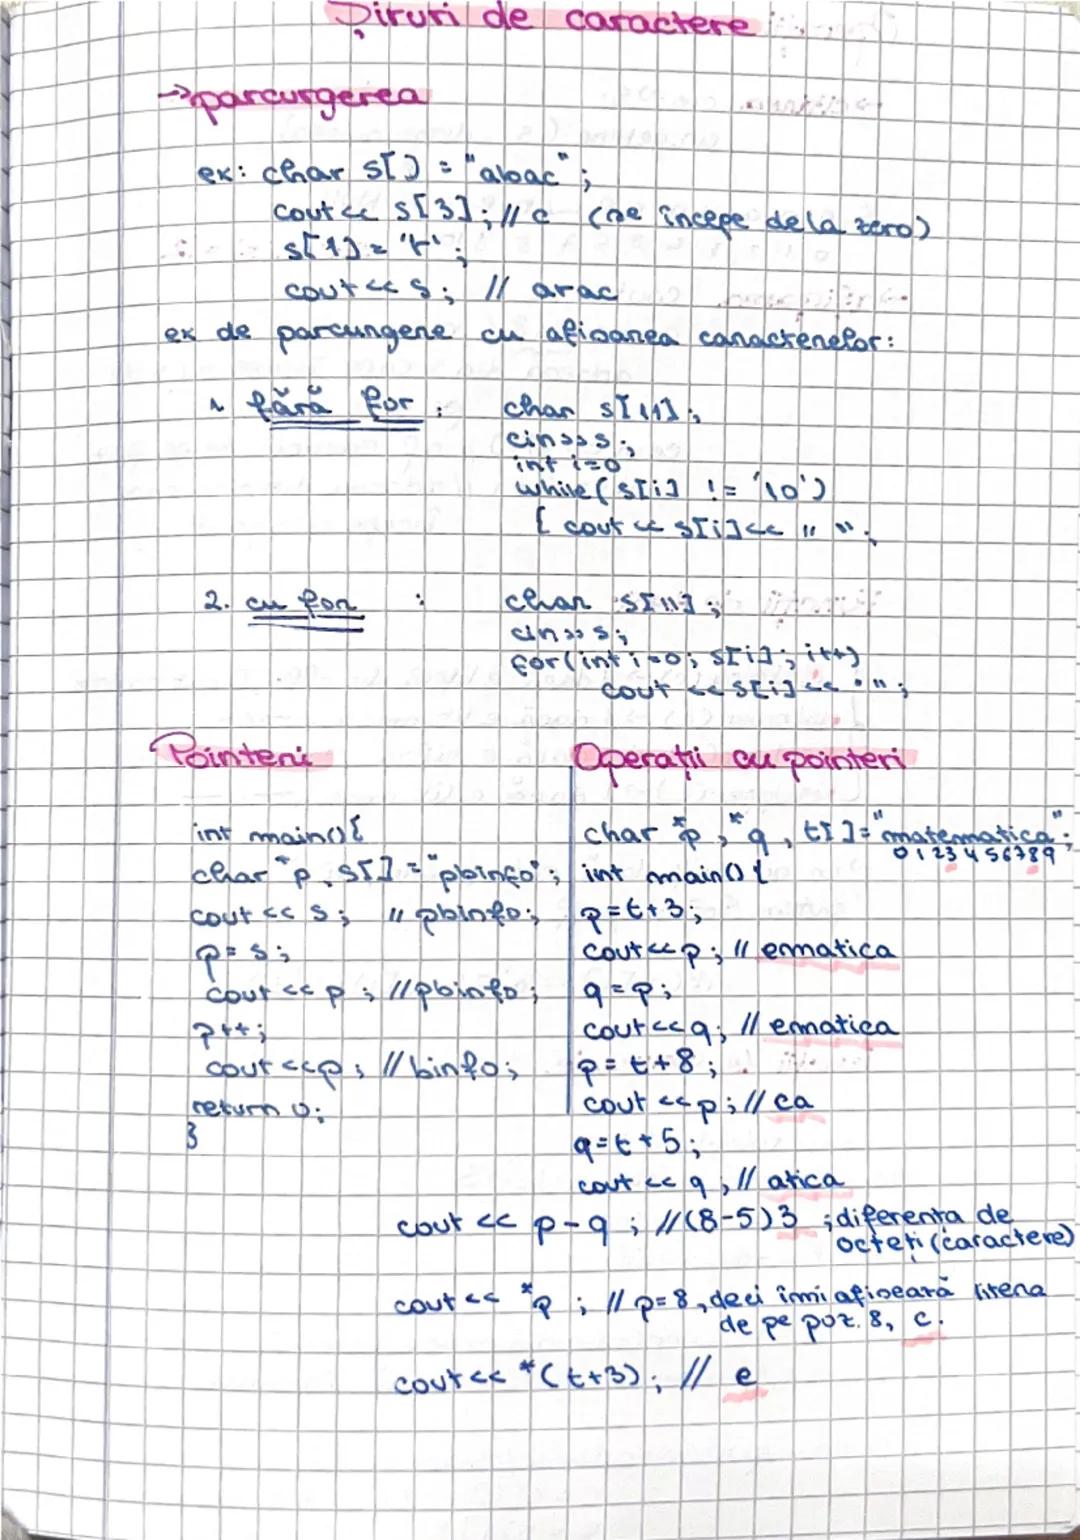 Șiruri de caractere
→ parcurgerea
ex: char s[] = "abac";
cout << s[3]; // c (se începe de la zero)
s[1] = 'r';
cout << s; // arac
ex de parcurgere cu afișarea caracterelor:
1. fără for : char s[11];
cin >> s;
int i=0
while (s[i] != '\0')
[ cout << s[i] << " ";
2. cu for : char s[11];
cin >> s;
for(int i=0; s[i]; i++)
cout << s[i] << " ";
Pointeri
int main(){
char *p, s[] = "pbinfo";
cout << s; // pbinfo;
p = s;
cout << p; // pbinfo;
p++;
cout << p; // binfo;
return 0;
}
Operații cu pointeri
char *p, *q, t[]="matematica";
0 1 2 3 4 5 6 7 8 9
int main(){
p=t+3;
cout << p; // ematica
q=p;
cout << q; // ematica
p=t+8;
cout << p; // ca
q=t+5;
cout << q; // atica
cout << p-q; //(8-5)3 ; diferența de
octeți (caractere)
cout << *p; // p=8, deci îmi afișează litera
de pe poz. 8, c.
cout << *(t+3); // e